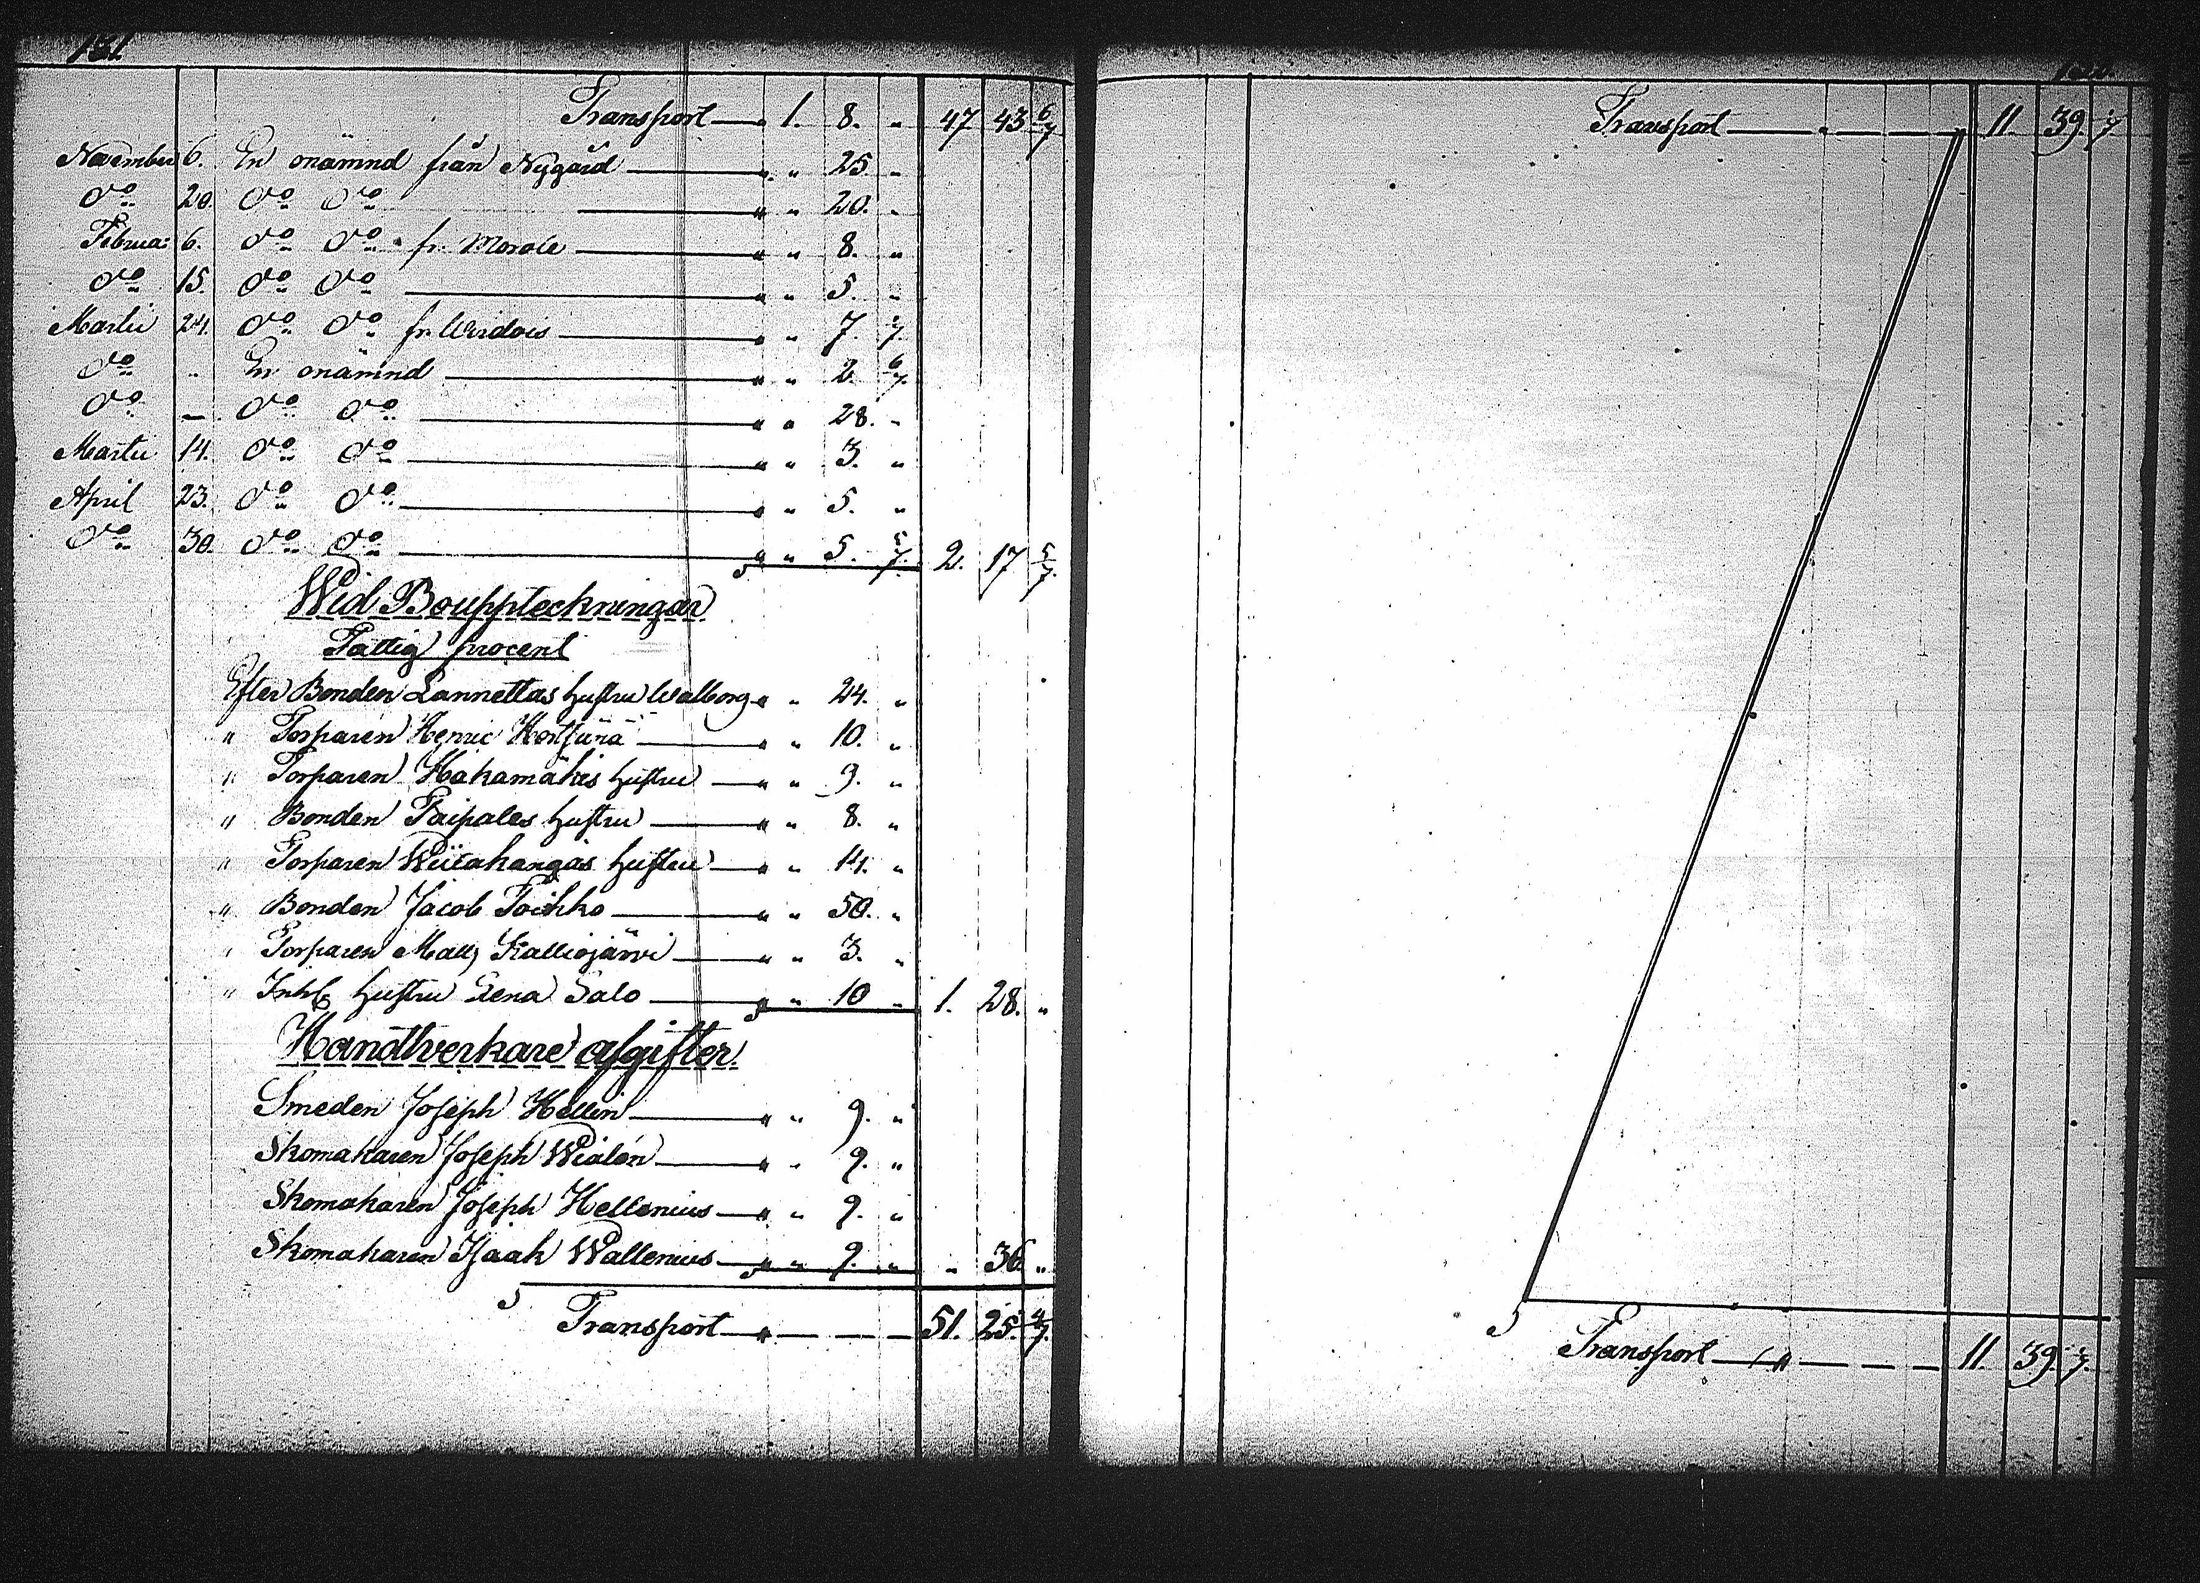 181.
Transport — " 1. 8. " 47 43 6/7
November 6. En onämnd från Nygård — " " 25. "
Do 20. Do Do — " " 20. "
Februa: 6. Do Do fr. Moroie — " " 8. "
Do 15. Do Do — " " 5. "
Martii 24. Do Do fr. Wirdois — " " 7. 1/7.
Do " En onämnd — " " 2. 6/7.
Do — Do Do — " " 28. "
Martii 14. Do Do — " " 3. "
April 23. Do Do — " " 5. "
Do 30. Do Do — " " 5. 5/7. 2. 17 5/7.
Wid Bouppteckningar
Fattig procent
Efter Bonden Lannettas hustru Walborg " " 24. "
" Torparen Henric — " " 10. "
" Torparen Hakamäkis hustru — " " 9. "
" Bonden Taipales hustru — " " 8. "
" Torparen Wiitakangas hustru — " " 14. "
" Bonden Jacob Toikko — " " 50. "
" Torparen Matts Kalliojärvi — " " 3. "
" Inh. hustru Lena Salo — " " 10 " 1. 28. "
Handtverkare afgifter.
Smeden Joseph Hellin — " " 9. "
Skomakaren Joseph Wialén — " " 9. "
Skomakaren Joseph Hellenius — " " 9. "
Skomakaren Isaak Wallenius — " " 9. " " 36. "
Transport — " — — — 51. 25. 4/7.
Transport — " — 11. 39.
Transport — " — — — 11. 39.